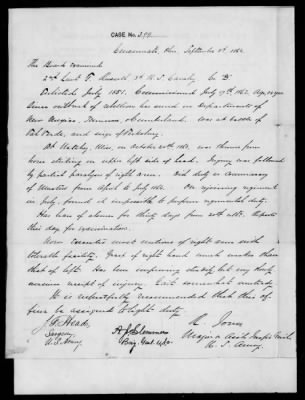 CASE No. 299
Cincinnati, Ohio, September 8th 1866
The Board examined
2nd Lieut F. Russell 3d U.S. Cavalry Co "B"
Enlisted July 1851. Commissioned July 17th 1862. Age
Since outbreak of rebellion has served in departments of
New Mexico, Tennessee & Cumberland. Was at battle of
and siege of Vicksburg.
At Natchez, Miss, on October 20th 1863, was thrown from
horse striking on upper left side of head. Injury was followed
by partial paralysis of right arm. Did duty as commissary
of Musters from April to July 1866. On rejoining regiment
in July, found it impossible to perform regimental duty.
Has leave of absence for thirty days from 20th Reports
this day for examination.
Now executes most motions of right arm with
tolerable facility. Grasp of right hand much weaker than
that of left. Has been improving slowly but very
since receipt of injury. Gait somewhat unsteady.
It is respectfully recommended that this of-
ficer be assigned to light duty.
J.F. Head,
Surgeon
U.S. Army
A.J. Slemmer
Brig. Genl
R. Jones
Major & Asst Insp Genl
U.S. Army